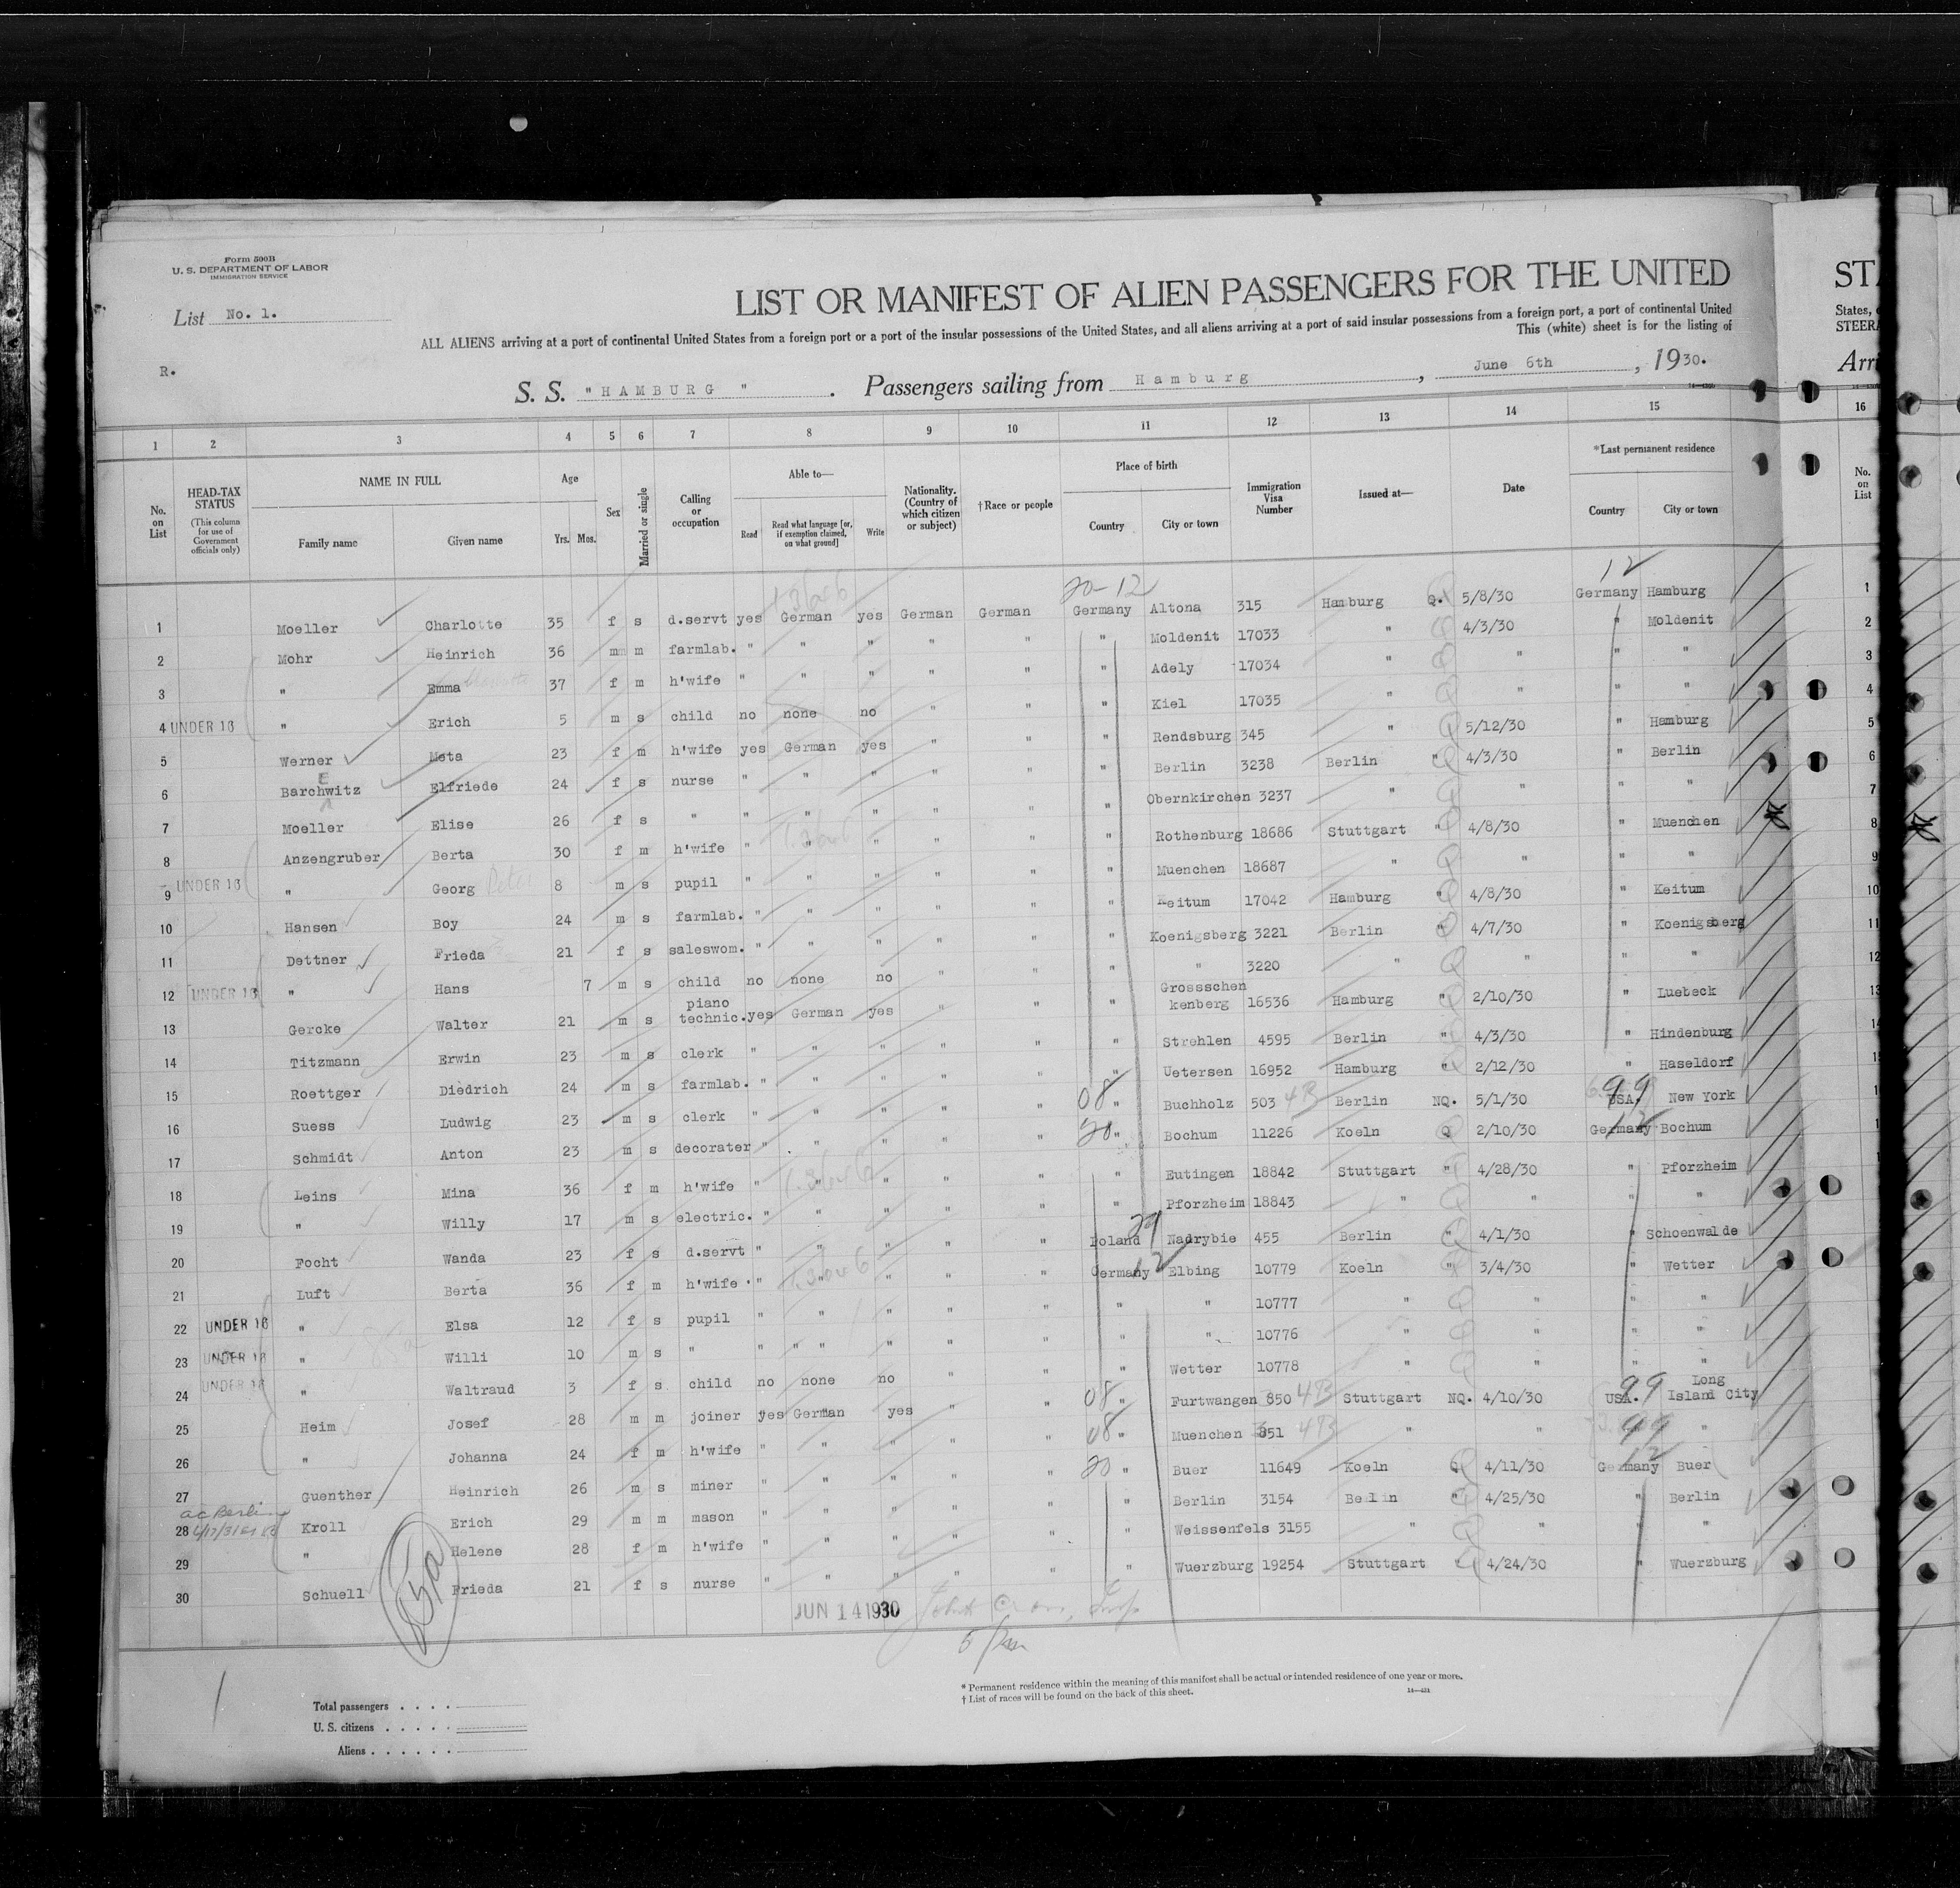 Form 500B
U. S. DEPARTMENT OF LABOR
IMMIGRATION SERVICE
List No. 1.
LIST OR MANIFEST OF ALIEN PASSENGERS FOR THE UNITED
ALL ALIENS arriving at a port of continental United States from a foreign port or a port of the insular possessions of the United States, and all aliens arriving at a port of said insular possessions from a foreign port, a port of continental United
This (white) sheet is for the listing of
R.
S. S. "HAMBURG" . Passengers sailing from Hamburg , June 6th , 1930.
STA
States,
STEERA
Arri
1 2 3 4 5 6 7 8 9 10 11 12 13 14 15 16
No. on List
HEAD-TAX STATUS (This column for use of Government officials only)
NAME IN FULL Family name Given name
Age Yrs. Mos.
Sex
Married or single
Calling or occupation
Able to— Read Read what language [or, if exemption claimed, on what ground] Write
Nationality. (Country of which citizen or subject)
†Race or people
Place of birth Country City or town
Immigration Visa Number
Issued at—
Date
*Last permanent residence Country City or town
No. on List
20-12 12
1 Moeller Charlotte 35 f s d.servt yes German yes German German Germany Altona 315 Hamburg Q. 5/8/30 Germany Hamburg 1
2 Mohr Heinrich 36 m m farmlab. " " " " " " Moldenit 17033 " 4/3/30 " Moldenit 2
3 " Emma 37 f m h'wife " " " " " " Adely 17034 " " " " 3
4 UNDER 16 " Erich 5 m s child no none no " " " Kiel 17035 " " " " 4
5 Werner Meta 23 f m h'wife yes German yes " " " Rendsburg 345 " 5/12/30 " Hamburg 5
6 Barchwitz E Elfriede 24 f s nurse " " " " " " Berlin 3238 Berlin " 4/3/30 " Berlin 6
7 Moeller Elise 26 f s " " " " " " " Obernkirchen 3237 " " " " 7
8 Anzengruber Berta 30 f m h'wife " " " " " " Rothenburg 18686 Stuttgart " 4/8/30 " Muenchen 8
9 UNDER 16 " Georg Peter 8 m s pupil " " " " " " Muenchen 18687 " " " " 9
10 Hansen Boy 24 m s farmlab. " " " " " " Keitum 17042 Hamburg " 4/8/30 " Keitum 10
11 Dettner Frieda 21 f s saleswom. " " " " " " Koenigsberg 3221 Berlin " 4/7/30 " Koenigsberg 11
12 UNDER 16 " Hans 7 m s child no none no " " " " 3220 " " " " 12
13 Gercke Walter 21 m s piano technic. yes German yes " " " Grossschen kenberg 16536 Hamburg " 2/10/30 " Luebeck 13
14 Titzmann Erwin 23 m s clerk " " " " " " Strehlen 4595 Berlin " 4/3/30 " Hindenburg 14
15 Roettger Diedrich 24 m s farmlab. " " " " " " Uetersen 16952 Hamburg " 2/12/30 " Haseldorf
16 Suess Ludwig 23 m s clerk " " " " " 08 " Buchholz 503 4B Berlin NQ. 5/1/30 USA. 99 New York
17 Schmidt Anton 23 m s decorater " " " " " 20 " Bochum 11226 Koeln Q 2/10/30 Germany 12 Bochum
18 Leins Mina 36 f m h'wife " " " " " " Eutingen 18842 Stuttgart " 4/28/30 " Pforzheim
19 " Willy 17 m s electric. " " " " " " Pforzheim 18843 " " " "
20 Focht Wanda 23 f s d.servt " " " " " Poland Nadrybie 455 Berlin " 4/1/30 " Schoenwalde
21 Luft Berta 36 f m h'wife " " " " " Germany 12 Elbing 10779 Koeln " 3/4/30 " Wetter
22 UNDER 16 " Elsa 12 f s pupil " " " " " " " 10777 " " " "
23 UNDER 16 " Willi 10 m s " " " " " " " " 10776 " " " "
24 UNDER 16 " Waltraud 3 f s child no none no " " " Wetter 10778 " " " "
25 Heim Josef 28 m m joiner yes German yes " " 08 " Furtwangen 850 4B Stuttgart NQ. 4/10/30 USA. 99 Long Island City
26 " Johanna 24 f m h'wife " " " " " 08 " Muenchen 851 4B " " 99 "
27 Guenther Heinrich 26 m s miner " " " " " 20 " Buer 11649 Koeln Q 4/11/30 Germany 12 Buer
28 Kroll Erich 29 m m mason " " " " " " Berlin 3154 Berlin " 4/25/30 " Berlin
29 " Helene 28 f m h'wife " " " " " " Weissenfels 3155 " " " "
30 Schuell Frieda 21 f s nurse " " " " " " Wuerzburg 19254 Stuttgart " 4/24/30 " Wuerzburg
JUN 14 1930
Total passengers . . . .
U. S. citizens . . . . .
Aliens . . . . . .
* Permanent residence within the meaning of this manifest shall be actual or intended residence of one year or more.
† List of races will be found on the back of this sheet.